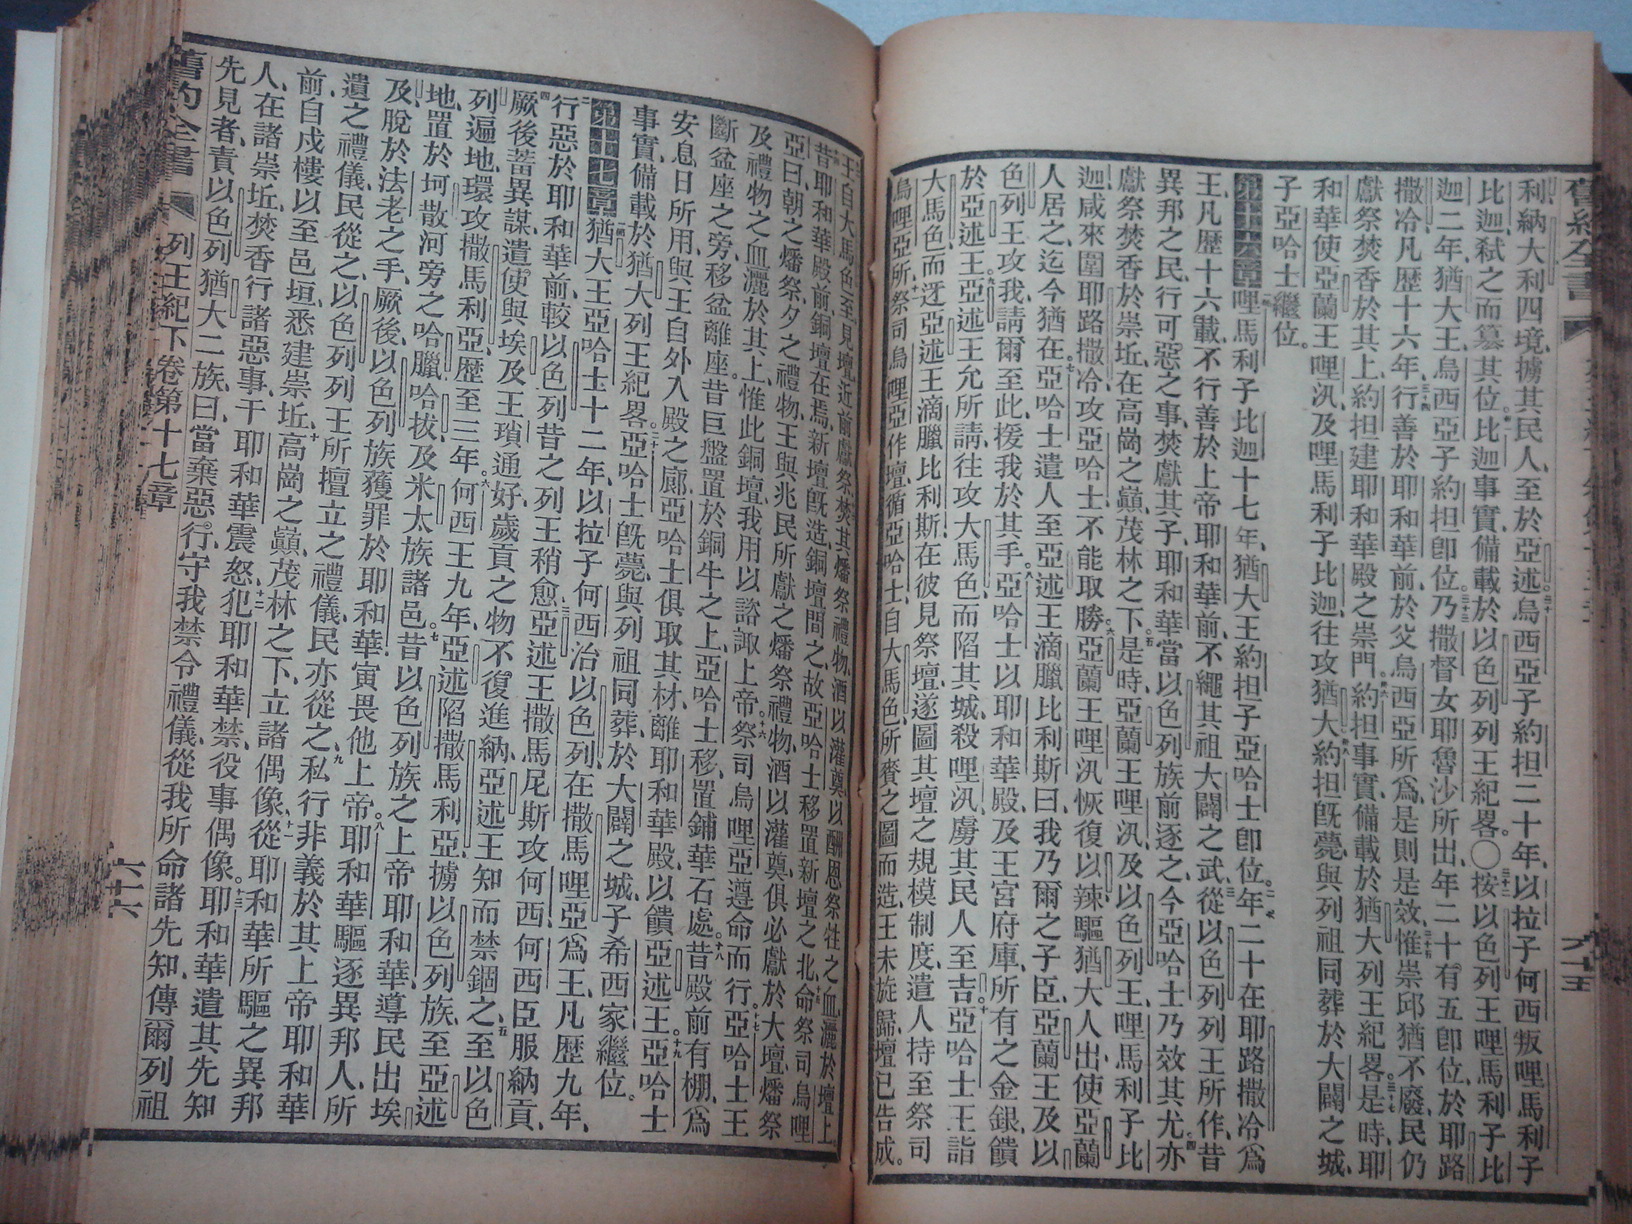 利納大利四境擄其民人至於亞述烏西亞子約担二十年以拉子何西叛哩馬利子
比迦弒之而簒其位比迦事實備載於以色列列王紀畧〇按以色列王哩馬利子比
迦二年猶大王烏西亞子約担卽位乃撒督女耶魯沙所出年二十有五卽位於耶路
撒冷凡歷十六年行善於耶和華前於父烏西亞所爲是則是效惟崇邱猶不廢民仍
獻祭焚香於其上約担建耶和華殿之崇門約担事實備載於猶大列王紀畧是時耶
和華使亞蘭王哩汛及哩馬利子比迦往攻猶大約担旣薨與列祖同葬於大闢之城
子亞哈士繼位。
第十六章哩馬利子比迦十七年猶大王約担子亞哈士卽位年二十在耶路撒冷爲
王凡歷十六載不行善於上帝耶和華前不繩其祖大闢之武從以色列列王所作昔
異邦之民行可惡之事焚獻其子耶和華當以色列族前逐之今亞哈士乃效其尤亦
獻祭焚香於崇坵在高崗之巓茂林之下是時亞蘭王哩汛及以色列王哩馬利子比
迦咸來圍耶路撒冷攻亞哈士不能取勝亞蘭王哩汛恢復以辣驅猶大人出使亞蘭
人居之迄今猶在亞哈士遣人至亞述王滴臘比利斯曰我乃爾之子臣亞蘭王及以
色列王攻我請爾至此援我於其手亞哈士以耶和華殿及王宮府庫所有之金銀饋
於亞述王亞述王允所請往攻大馬色而陷其城殺哩汛虜其民人至吉亞哈士王詣
大馬色而迓亞述王滴臘比利斯在彼見祭壇遂圖其壇之規模制度遣人持至祭司
烏哩亞所祭司烏哩亞作壇循亞哈士自大馬色所賫之圖而造王未旋歸壇已告成。
王自大馬色至見壇近前獻祭焚其燔祭禮物酒以灌奠以酬恩祭牲之血灑於壇上
昔耶和華殿前銅壇在焉新壇旣造銅壇間之故亞哈士移置新壇之北命祭司烏哩
亞曰朝之燔祭夕之禮物王與兆民所獻之燔祭禮物酒以灌奠俱必獻於大壇燔祭
及禮物之血灑於其上惟此銅壇我用以諮諏上帝祭司烏哩亞遵命而行亞哈士王
斷盆座之旁移盆離座昔巨盤置於銅牛之上亞哈士移置鋪華石處昔殿前有棚爲
安息日所用與王自外入殿之廊亞哈士俱取其材離耶和華殿以饋亞述王亞哈士
事實備載於猶大列王紀畧亞哈士旣薨與列祖同葬於大闢之城子希西家繼位。
第十七章猶大王亞哈士十二年以拉子何西治以色列在撒馬哩亞爲王凡歷九年
行惡於耶和華前較以色列昔之列王稍愈亞述王撒馬尼斯攻何西何西臣服納貢
厥後蓄異謀遣使與埃及王瑣通好歲貢之物不復進納亞述王知而禁錮之至以色
列遍地環攻撒馬利亞歷至三年何西王九年亞述陷撒馬利亞擄以色列族至亞述
地置於坷散河旁之哈臘哈拔及米太族諸邑昔以色列族之上帝耶和華導民出埃
及脫於法老之手厥後以色列族獲罪於耶和華寅畏他上帝耶和華驅逐異邦人所
遺之禮儀民從之以色列列王所擅立之禮儀民亦從之私行非義於其上帝耶和華
前自戍樓以至邑垣悉建崇坵高崗之巓茂林之下立諸偶像從耶和華所驅之異邦
人在諸崇坵焚香行諸惡事干耶和華震怒犯耶和華禁役事偶像耶和華遣其先知
先見者責以色列猶大二族曰當棄惡行守我禁令禮儀從我所命諸先知傳爾列祖
舊約全書 列王紀下卷第十七章 六十六